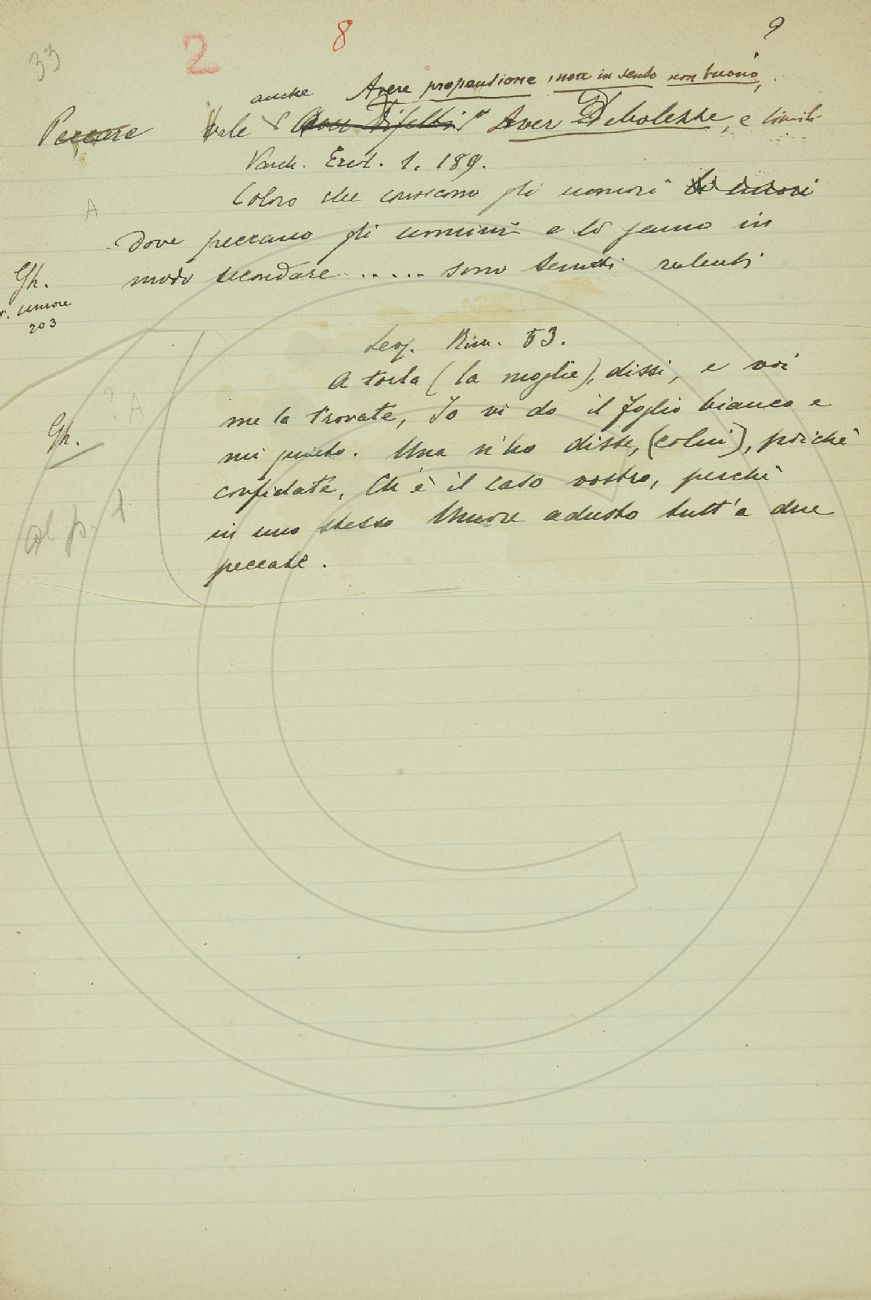 9
33 2 8
anche Avere propensione, ma in senso non buono,
Peccare vale Aver Debolezze, e simili
Varch. Erol. 1. 189.
A Coloro che conoscono gli umori
dove peccano gli uomini e li sanno in
Gh. modo secondare ...... sono tenuti valenti
v. umore
203
Leop. Rim. 53.
? A A torla (la moglie), dissi, e voi
Gh. me la trovate, Io vi do il foglio bianco e
mi quieto. Una n'ho disse, (colui), poichè
confidate, Ch'è il caso vostro, perchè
al p. 1 in uno stesso Umore adusto tutt'a due
peccate.